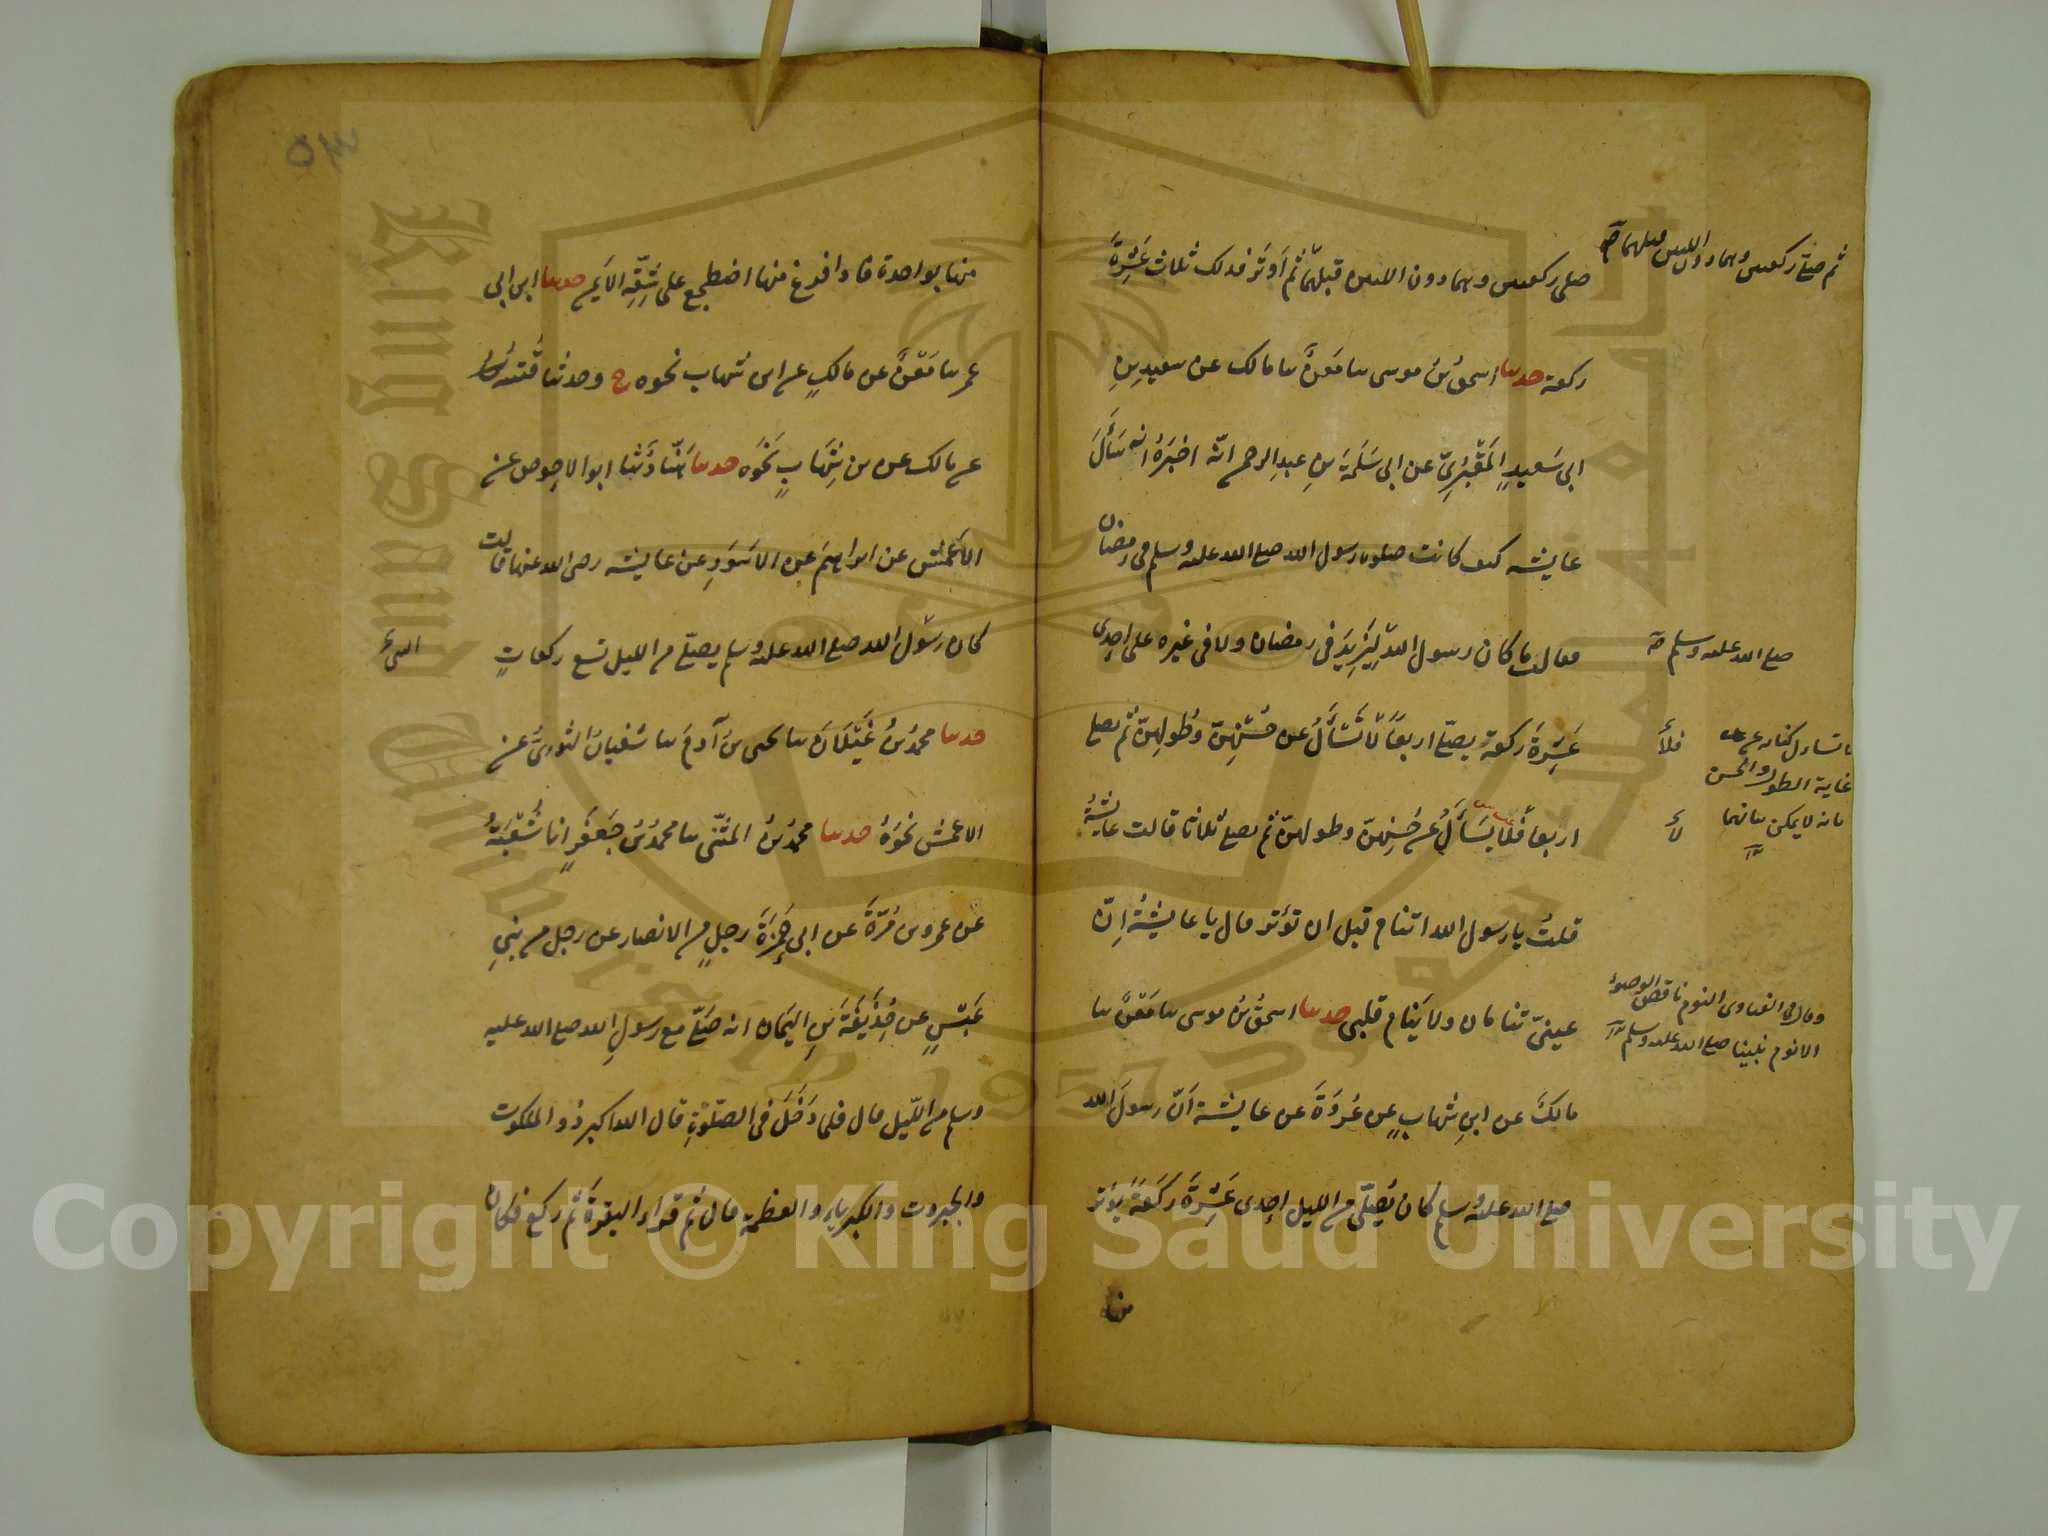 صلى ركعتين وهما دون اللتين قبلهما ثم اَوتَر فذلك ثلاث عَشِرَةَ
ركعة حدثنا اسحقُ بنُ موسى ثنا مَعنٌ ثنا مالك عن سعيدِ بنِ
ابى سَعيدٍ المَقْبُرِىّ عن ابى سَلَمَةَ بنِ عبدِ الرحمن انّه اخبَرَهُ انه سَأَلَ
عايشه كيف كانت صلوة رسول الله صلى الله عليه وسلم فى رمضان
فقالت ما كان رسول اللهِ لِيَزِيدَ فى رمضان ولا فى غيره على اِحدى
عَشِرَةَ ركعة يصلّى اربعًا لا تَسْأَلُ عن حُسْنِهِنّ وطُولِهِنّ ثم يصلى
اربعاً فلا يَسَأَلُ عن حُسنِهِنّ وطولهنّ ثم يصلى ثلاثا قالت عايشةُ
قلتُ يا رسول الله اتنام قبل ان توتر قال يا عايشةُ اِنّ
عينىّ تنامان ولا يَنام قلبى حدثنا اسحقُ بنُ موسى ثنا مَعْنٌ ثنا
مالكٌ عن ابنِ شهابٍ عن عُروَةَ عن عايشة اَنّ رسولَ الله
صلى الله عليه وسلم كان يُصلّى من الليل اِحدى عَشِرَةَ ركعَةً يُوتر
منها
ثم صلى ركعتين وهما دون اللتين قبلهما
صلى الله عليه وسلم
فلا
لا
غاية الطول والحسن
منها بواحدة فاذا فرغ منها اضطجع على شِقِّهِ الايمن حدثنا ابن ابى
عمر ثنا مَعْنٌ عن مالكٍ عن ابن شهاب نحوه ح وحدثنا قُتَيبَةُ
عن مالك عن بن شِهَابٍ نَحَوَه حدثنا هَنّادٌ ثنا ابو الاحوص عن
الاَعْمَشِ عن ابراهيمَ عن الاَسَوَدِ عن عايشه رضى الله عنها قالت
كان رسول الله صلى الله عليه وسلم يصلّى من الليل تسع ركعاتٍ
حدثنا محمدُ بنُ غَيْلَانَ ثنا يحيى بنُ آدمَ ثنا سُفيانُ الثورىُّ عن
الاعمش نحوَهُ حدثنا محمدُ بنُ المثنّى ثنا محمدُ بنُ جَعَفَرٍ انا شُعْبَةُ
عن عمرو بن مُرّةَ عن ابى حَمزَةَ رجلٍ من الانصار عن رجل من بنىِ
عَبْسٍ عن حُذَيفَةَ بنِ اليَمَان انه صَلّى مع رسولِ الله صلى الله عليه
وسلم من اللّيل قال فلما دَخَلَ فى الصّلوةِ قال الله اكبر ذو الملكوت
والجبروت والكبرياء والعظمةِ قال ثم قرأ البقرةَ ثم ركع فكان
Copyright © King Saud University
King Saud University
1957